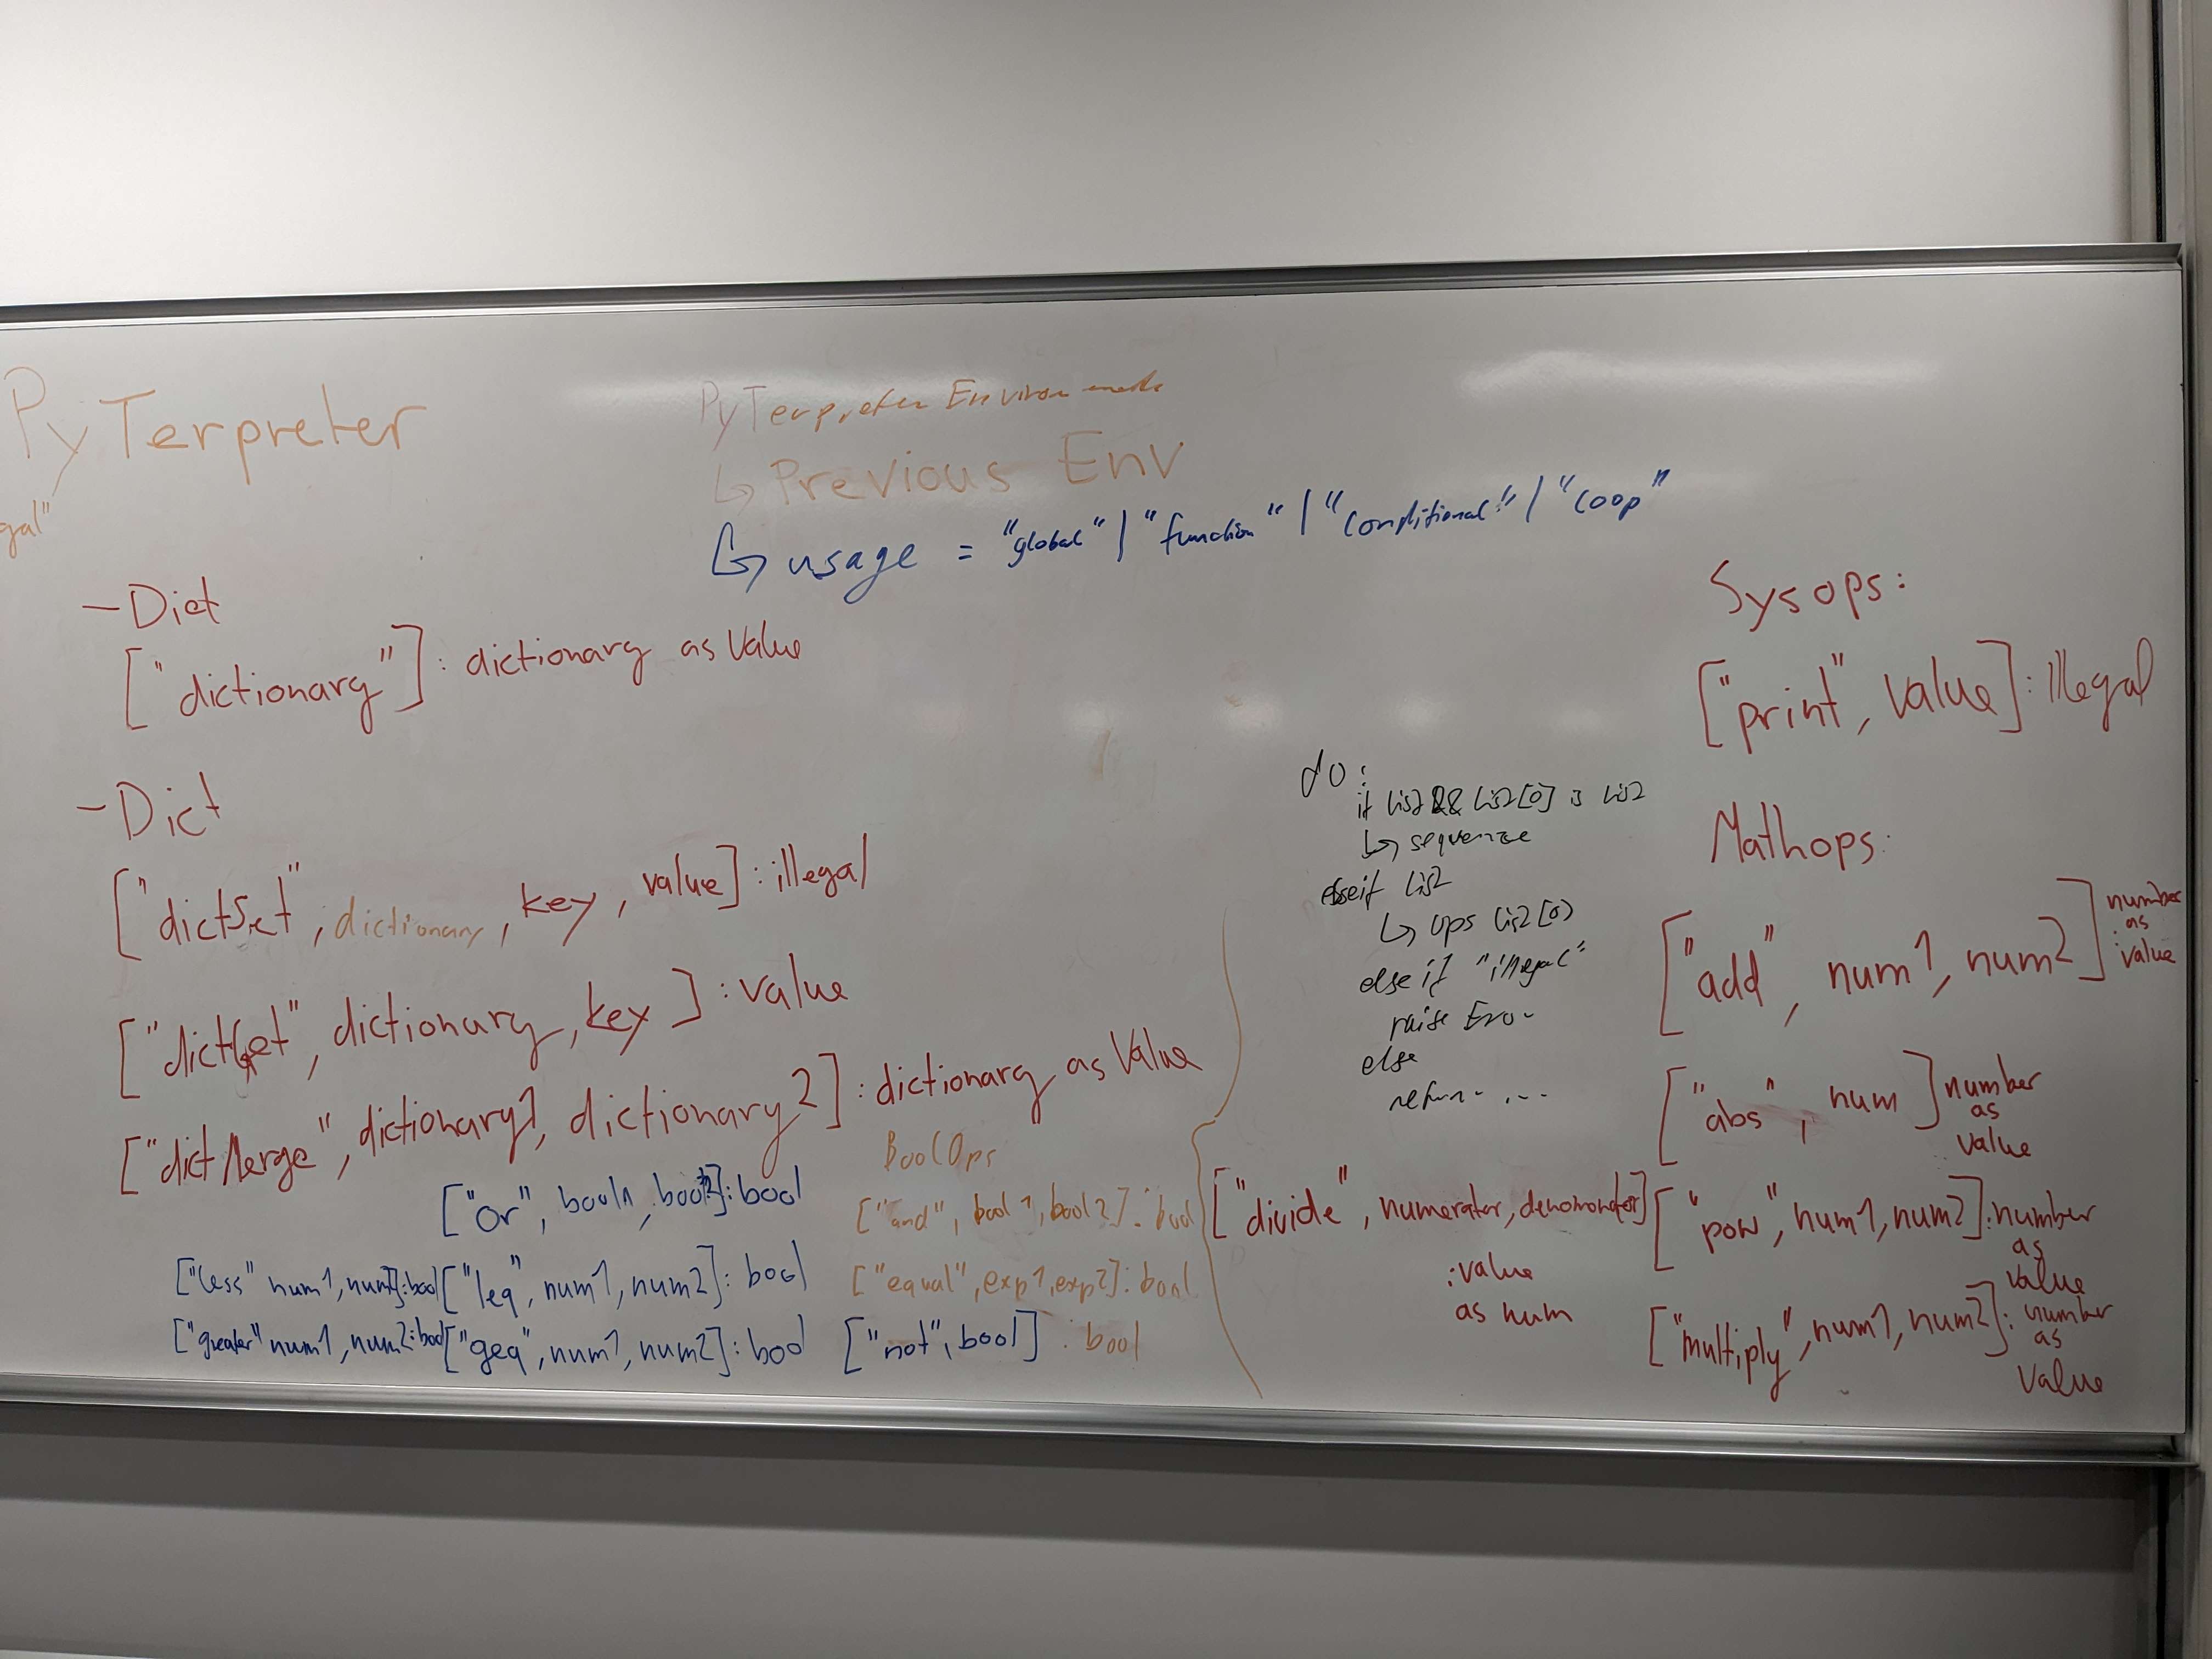 PyTerpreter
gal"
PyTerpreter Environment
↳ Previous Env
↳ usage = "global" | "function" | "conditional" | "loop"
- Dict
["dictionary"]: dictionary as Value
- Dict
["dictSet", dictionary, key, value]: illegal
["dictGet", dictionary, key]: value
["dictMerge", dictionary1, dictionary2]: dictionary as Value
["or", bool1, bool2]: bool
["less" num1, num2]: bool
["leq", num1, num2]: bool
["greater" num1, num2: bool
["geq", num1, num2]: bool
BoolOps
["and", bool1, bool2]: bool
["equal", exp1, exp2]: bool
["not", bool]: bool
do:
if list && list[0] is list
↳ sequence
elseif list
↳ ops list[0]
else if "illegal"
raise Error
else
return ...
Sysops:
["print", value]: illegal
Mathops:
["add", num1, num2]: number
as
value
["abs", num] number
as
value
["divide", numerator, denomonator]
: value
as num
["pow", num1, num2]: number
as
value
["multiply", num1, num2]: number
as
Value